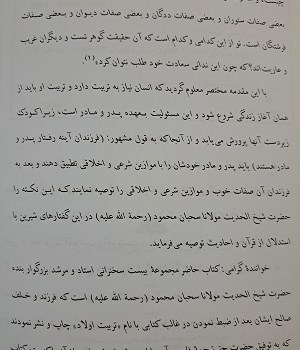 بعضی صفات ستوران و بعضی صفات ددگان و بعضی صفات دیوان و بعضی صفات
فرشتگان است. تو از این کدامی و کدام است که آن حقیقت گوهر تست و دیگران غریب
و عاریت‌اند؟ که چون این ندانی سعادت خود طلب نتوان کرد»(۱).
با این مقدمه مختصر معلوم گردید که انسان نیاز به تربیت دارد و تربیت او باید از
همان آغاز زندگی شروع شود و این مسئولیت بعهده پدر و مادر است، زیرا کودک
زیردست آنها پرورش می‌یابد و از آنجا که به قول مشهور: (فرزندان آینه رفتار پدر و
مادر هستند) باید پدر و مادر خودشان را با موازین شرعی و اخلاقی تطبیق دهند و بعد به
فرزندان آن صفات خوب و موازین شرعی و اخلاقی را توصیه نمایند که این نکته را
حضرت شیخ الحدیث مولانا سبحان محمود (رحمة الله علیه) در این گفتارهای شیرین با
استدلال از قرآن و احادیث توصیه می‌فرماید.
خوانندهٔ گرامی: کتاب حاضر مجموعهٔ بیست سخنرانی استاد و مرشد بزرگوار بنده
حضرت شیخ الحدیث مولانا سبحان محمود (رحمة الله علیه) است که فرزند و خلف
صالح ایشان بعد از ضبط نمودن در قالب کتابی با نام «تربیت اولاد» چاپ و نشر نمودند
که به توفیق حضرت حق